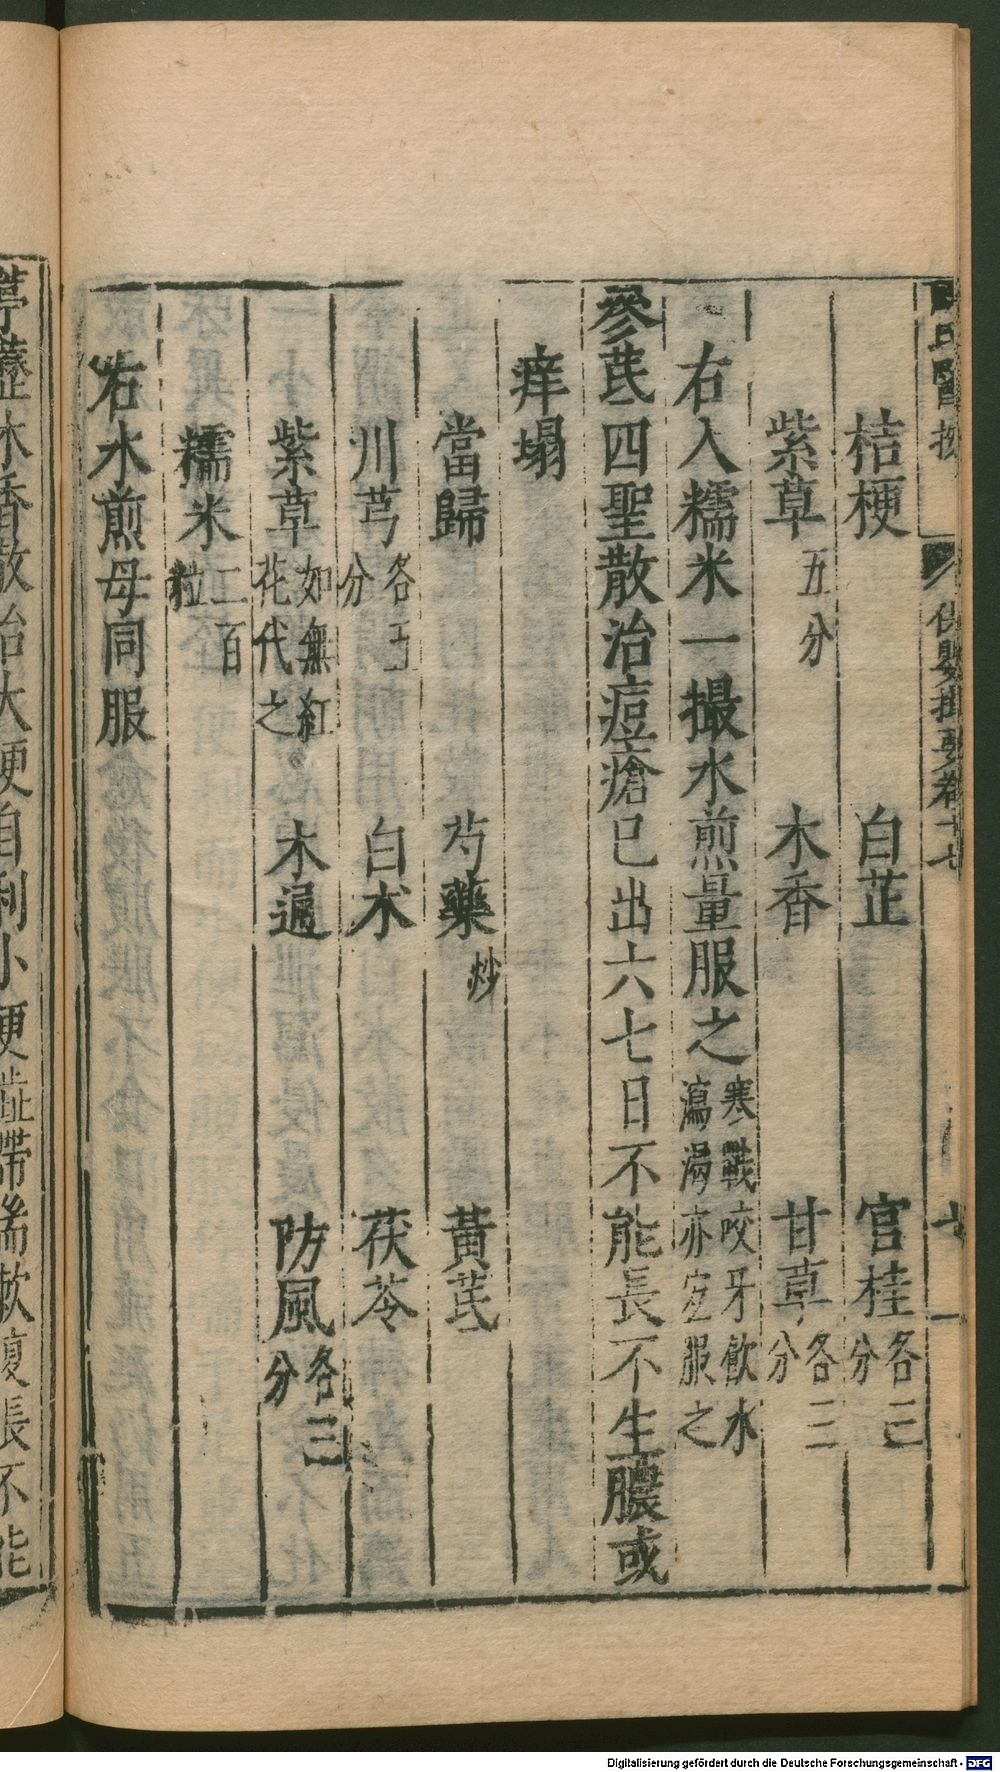 保嬰撮要卷十七
桔梗 白芷 官桂各三分
紫草五分 木香 甘草各二分
右入糯米一撮水煎量服之寒戰咬牙飲水瀉渴亦宜服之
參芪四聖散治痘瘡已出六七日不能長不生膿或
痒塌
當歸 芍藥炒 黃芪
川芎各五分 白朮 茯苓
紫草如無紅花代之 木通 防風各三分
糯米二百粒
右水煎母同服
葶藶木香散治大便自利小便澁滯喘嗽腹脹不能
Digitalisierung gefördert durch die Deutsche Forschungsgemeinschaft - DFG